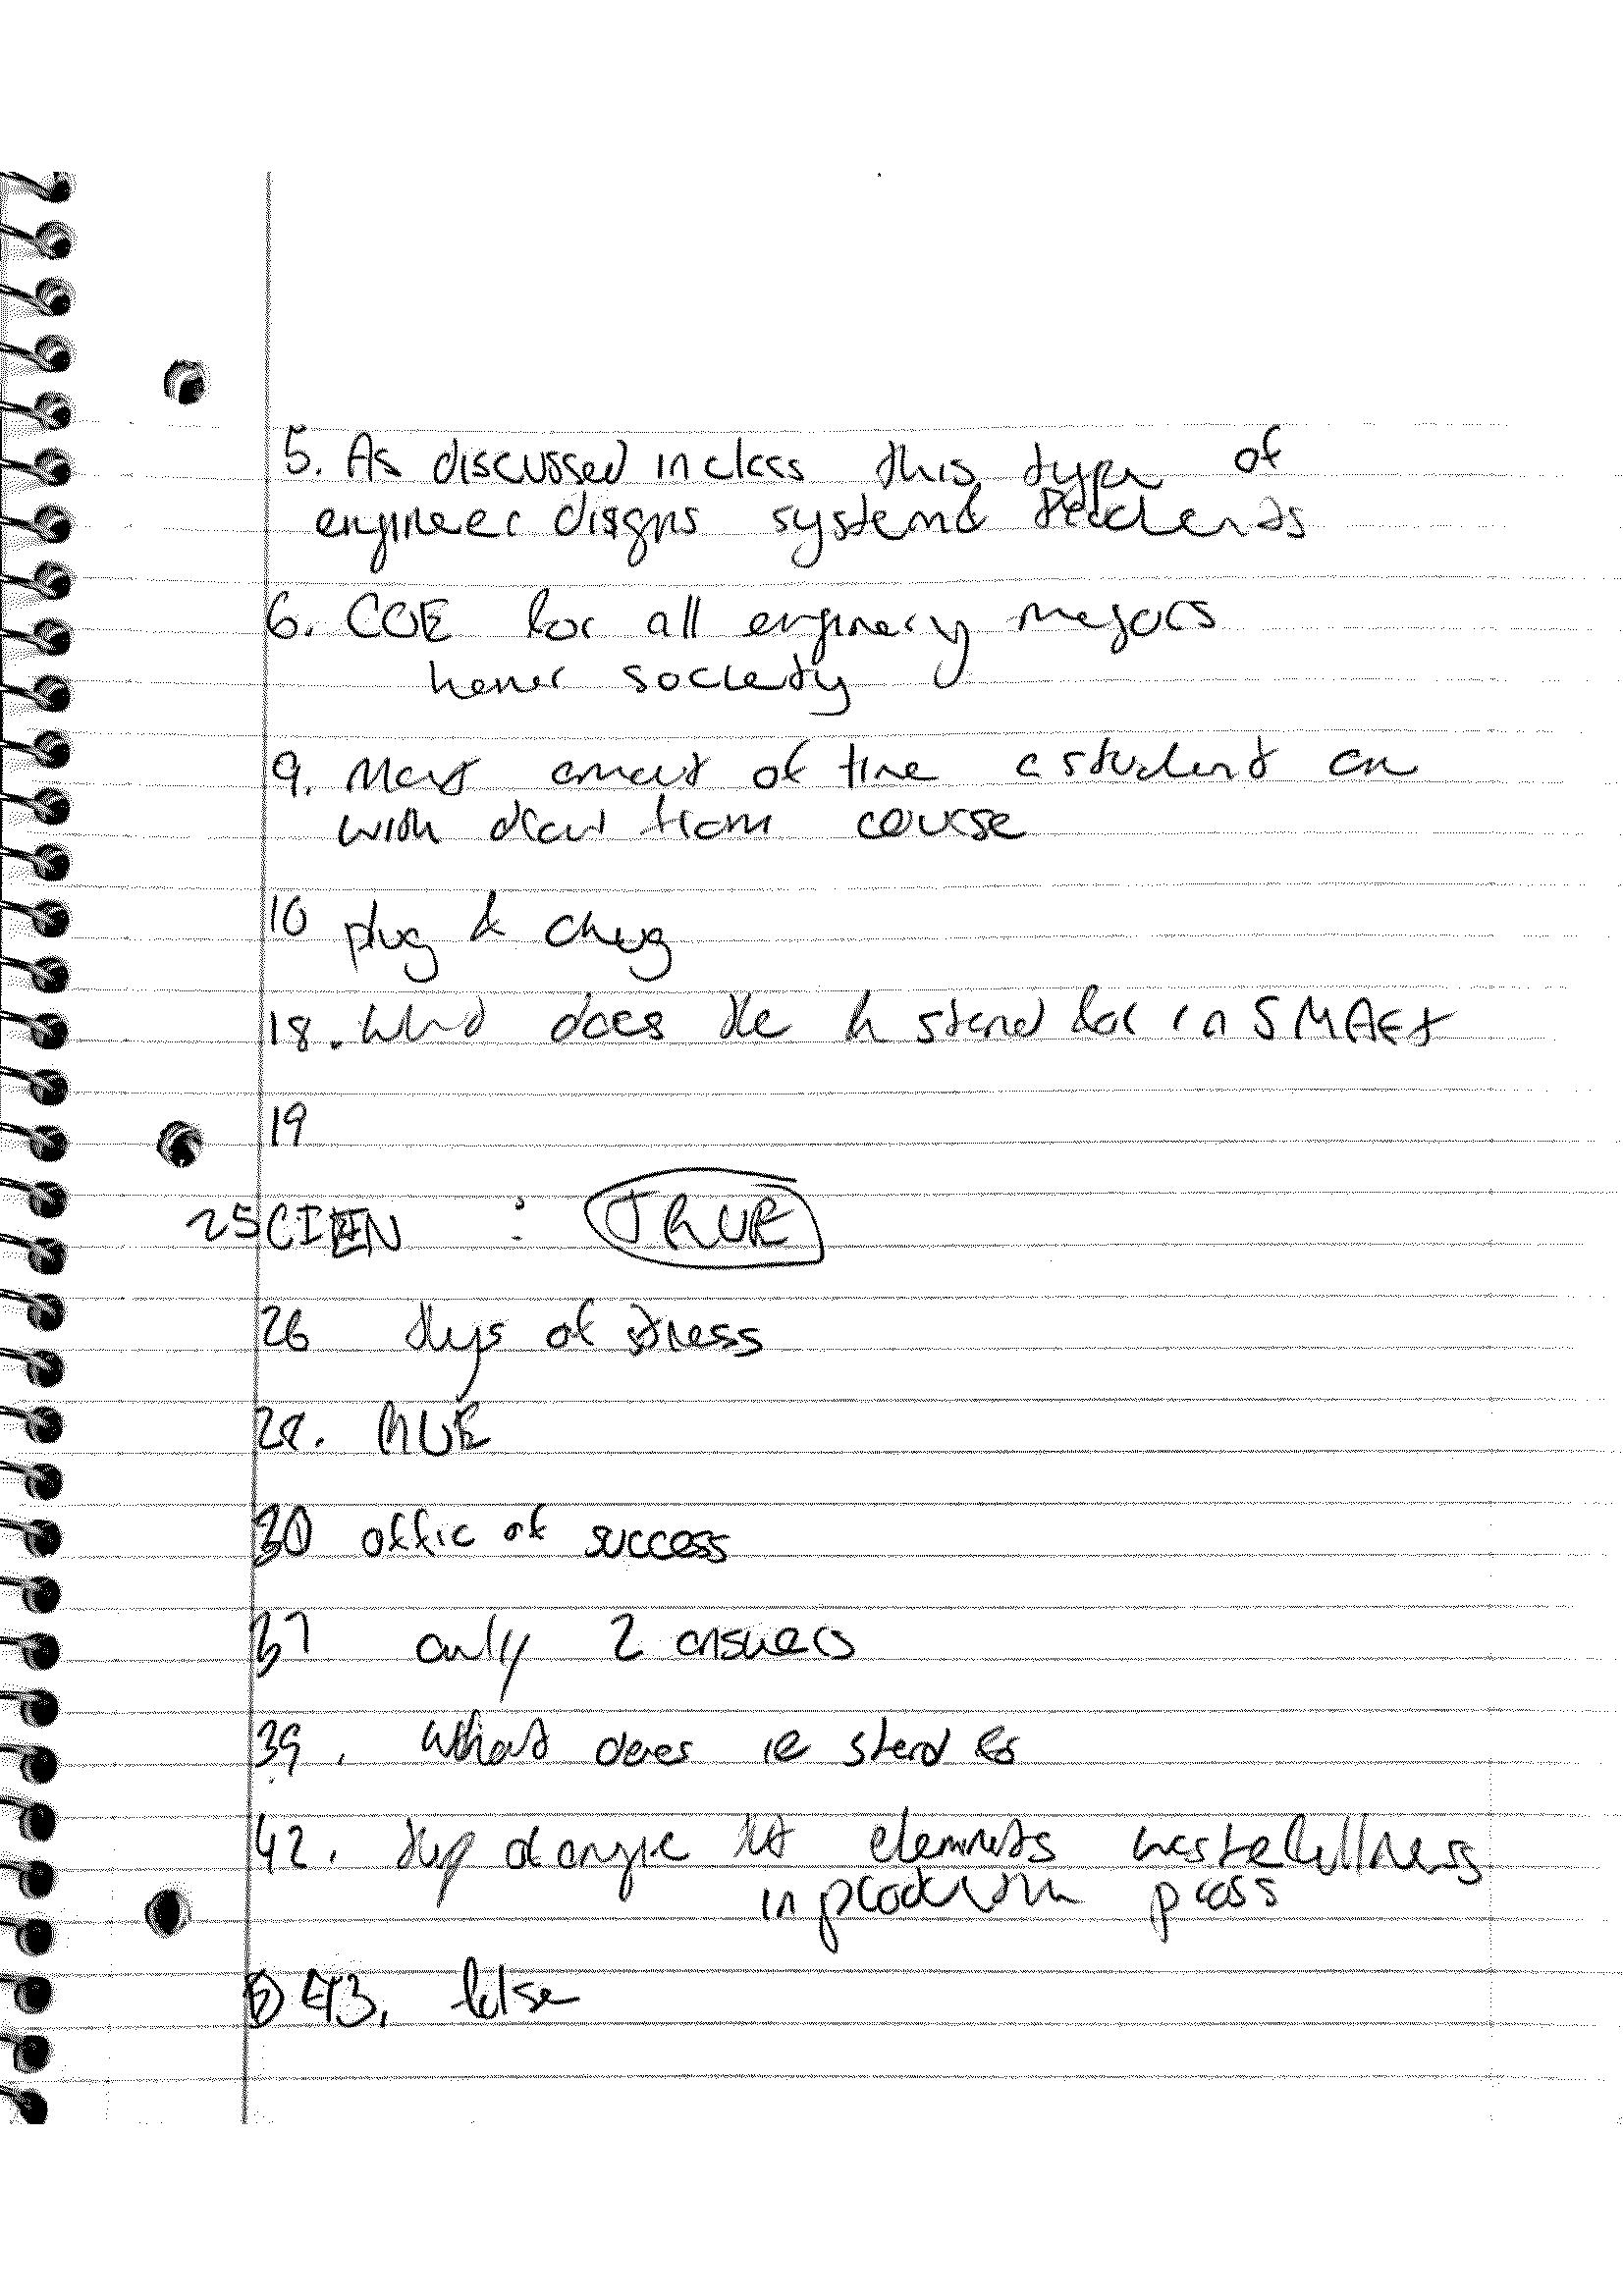 5. As discussed in class this type of
engineer disgns system &
6. COE for all enginery majors
honer society
9. Most amout of time a student can
with draw from course
10 plug & chug
18. What does the R stand for in SMARt
19
25 CIEN : TRUE
26 of stress
28.
30 offic of success
37 only 2 answers
39. What does ie stand for
42. wastefullness
in production
43. false